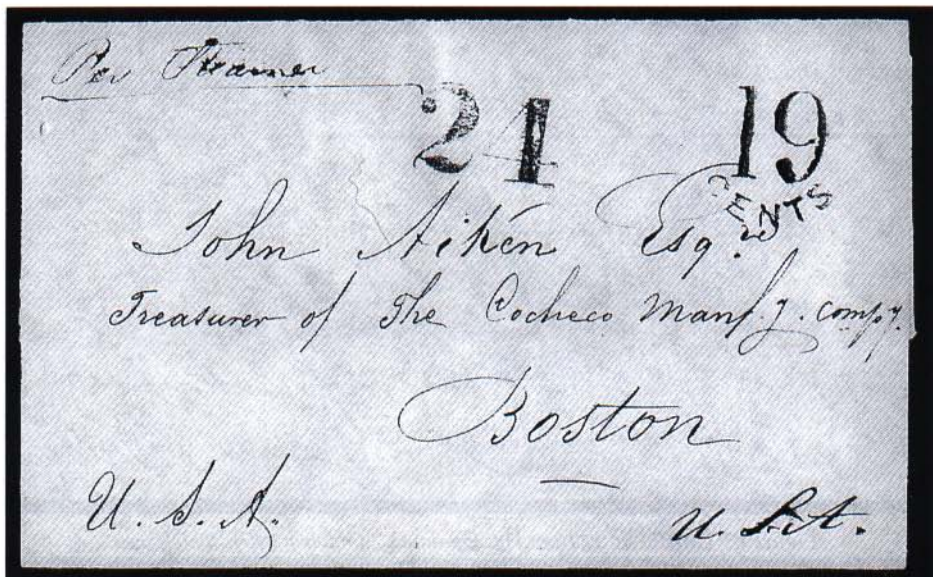 Per Steamer
24 19
CENTS
John Aiken Esq.
Treasurer of The Cocheco Manf.g. compy.
Boston
U. S. A. U. S. A.